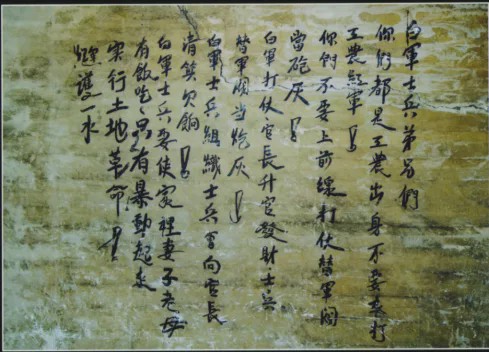 白軍士兵弟兄們
你們都是工農出身不要來打
工農紅軍！
你們不要上前線打仗替軍閥
當砲灰！
白軍打仗官長升官發財士兵
替軍閥当炮灰！
白軍士兵組織士兵會向官長
清算欠餉！
白軍士兵要使家裡妻子老母
有飯吃只有暴動起來
实行土地革命！
護一水